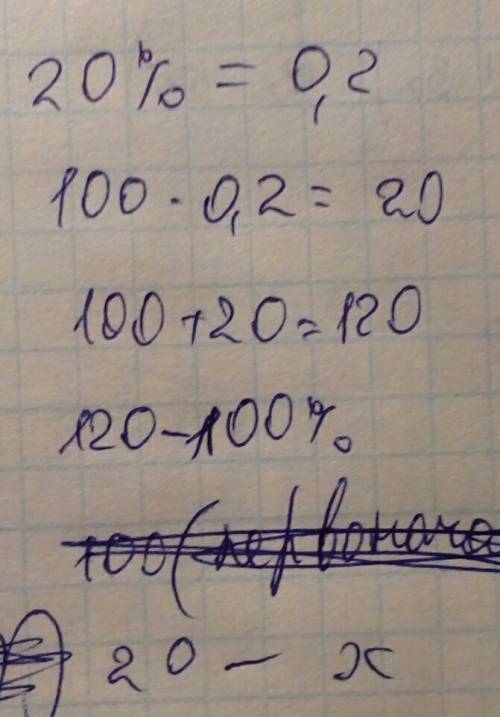 20% = 0,2
100 · 0,2 = 20
100 + 20 = 120
120 – 100%
100 (первонача
20 – x